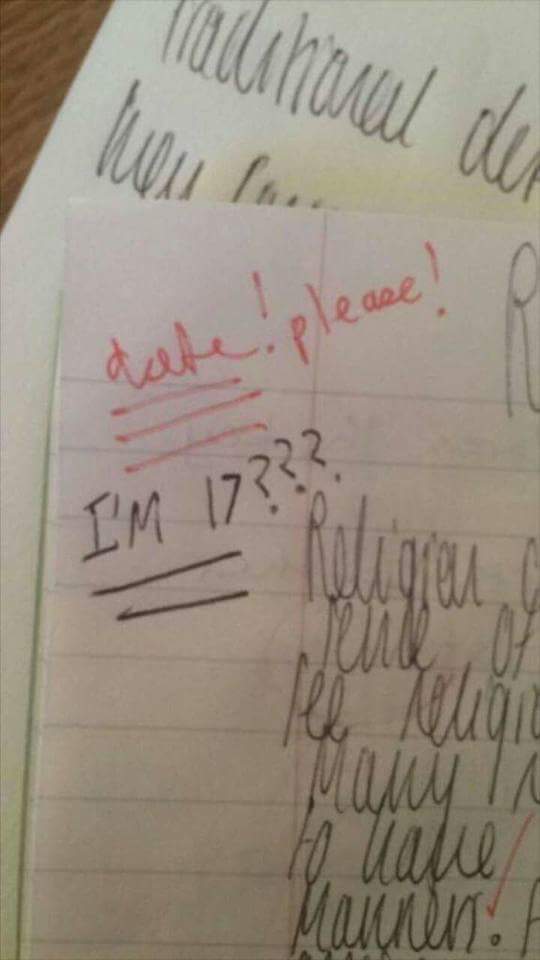 Traditional de
date! please!
R
I'M 17???
Religion
of
see religio
Many
to have
Manners.